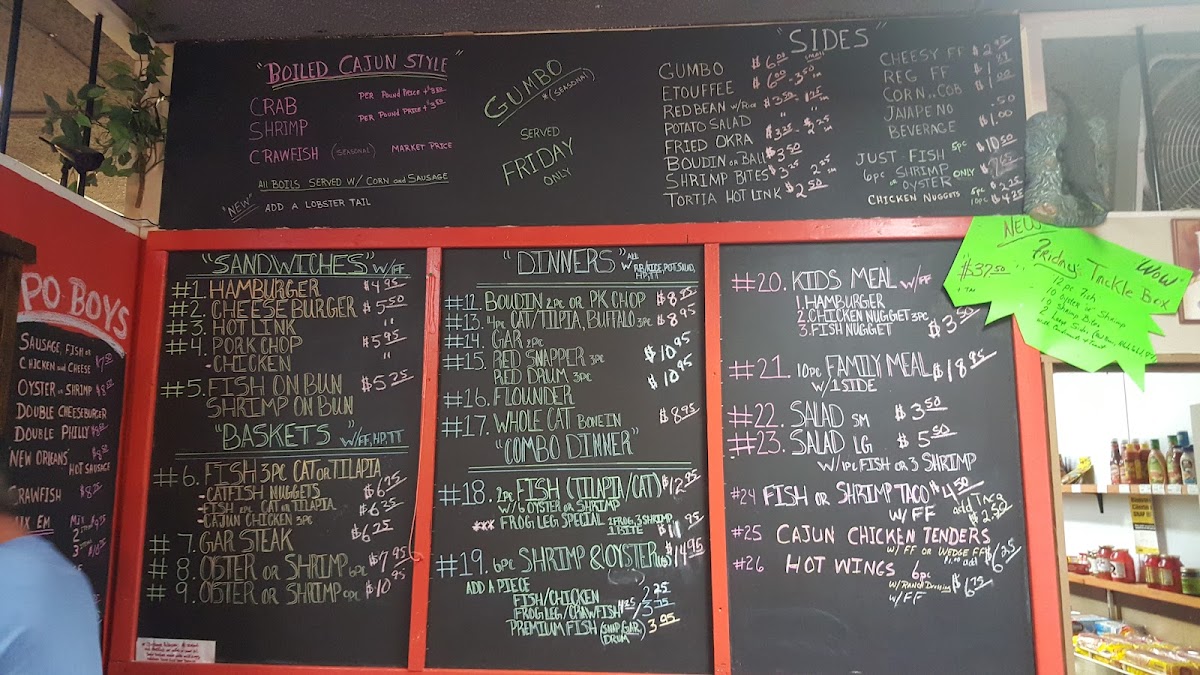 "BOILED CAJUN STYLE"
CRAB PER POUND PRICE +
SHRIMP PER POUND PRICE +
CRAWFISH (SEASONAL) MARKET PRICE
ALL BOILS SERVED W/ CORN and SAUSAGE
"NEW" ADD A LOBSTER TAIL
GUMBO
*(SEASONAL)
SERVED
FRIDAY
ONLY
"SIDES"
GUMBO $6.00 small
ETOUFFEE $6.00 - 3.50
RED BEAN W/RICE $3.50
POTATO SALAD "
FRIED OKRA $3.25
BOUDIN OR BALL $3.50
SHRIMP BITES $3.25
TORTIA HOT LINK $2.50
CHEESY FF $2.95
REG FF
CORN..COB $1.00
JALAPENO .50
BEVERAGE $1.00
JUST FISH 5PC $10.50
6PC SHRIMP ONLY
or OYSTER
CHICKEN NUGGETS 5PC $2.25
10PC $4.25
PO BOYS
SAUSAGE, FISH or
CHICKEN and CHEESE $7.50
OYSTER or SHRIMP
DOUBLE CHEESEBURGER
DOUBLE PHILLY
NEW ORLEANS
HOT SAUSAGE
CRAWFISH $8.25
"SANDWICHES" W/FF
#1. HAMBURGER $4.95
#2. CHEESE BURGER $5.50
#3. HOT LINK "
#4. PORK CHOP $5.95
- CHICKEN "
#5. FISH ON BUN $5.25
SHRIMP ON BUN
"BASKETS" W/FF, HP, TT
#6. FISH 3PC CAT OR TILAPIA
- CATFISH NUGGETS $6.75
- FISH 2PC CAT OR TILAPIA $6.35
- CAJUN CHICKEN 3PC
#7. GAR STEAK $6.25
#8. OSTER OR SHRIMP 6PC $7.95
#9. OSTER OR SHRIMP 9PC $10.95
"DINNERS" ALL
W/RB/RICE, POT.SALAD,
HP, TT
#12. BOUDIN 2PC OR PK CHOP $8.95
#13. 4PC CAT/TILPIA, BUFFALO 3PC $8.95
#14. GAR 2PC
#15. RED SNAPPER 3PC $10.95
RED DRUM 3PC $10.95
#16. FLOUNDER
#17. WHOLE CAT BONE IN $8.95
"COMBO DINNER"
#18. 2PC FISH (TILAPIA/CAT) $12.95
W/6 OYSTER OR SHRIMP
*** FROG LEG SPECIAL 2 FROG, 3 SHRIMP
1 BITE $11.95
#19. 6PC SHRIMP & OYSTER $14.95
ADD A PIECE
FISH/CHICKEN 2.25
FROG LEG/CRAWFISH
PREMIUM FISH (SNAP, GAR, 3.95
DRUM)
#20. KIDS MEAL W/FF
1. HAMBURGER
2. CHICKEN NUGGET 3PC
3. FISH NUGGET $3.50
#21. 10PC FAMILY MEAL $18.95
W/1 SIDE
#22. SALAD SM $3.50
#23. SALAD LG $5.50
W/1PC FISH OR 3 SHRIMP
#24 FISH OR SHRIMP TACO $4.50
W/FF add TACO $2.50
#25 CAJUN CHICKEN TENDERS
W/FF OR WEDGE FF $6.25
#26 HOT WINGS 6PC
W/RANCH DRESSING $6.75
W/FF
NEW
WOW
Friday Tackle Box
$37.50
+ TAX
12pc Fish
10 oyster or Shrimp
10 Shrimp Bites
2 Large Sides